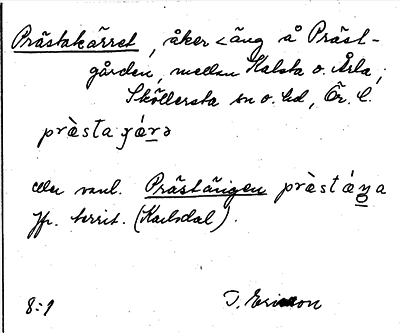 Prästakärret, åker < äng å Präst-
gården, mellan Halsta o. Årla,
Sköllersta sn o. hd, Ör. l.
pràstaɟǽrə
eller vanl. Prästängen pràstǽŋa
Jfr. territ. (Karlsdal).
8:1 J. Ericsson